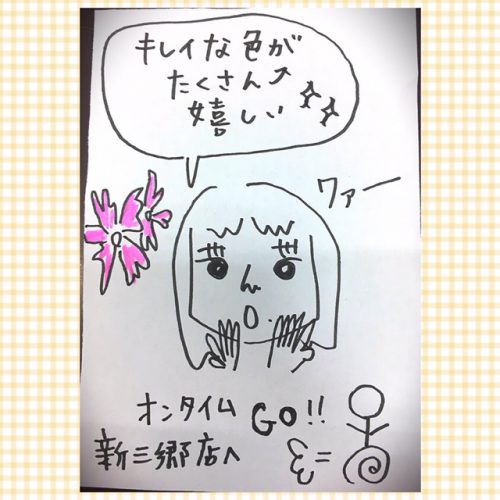 キレイな色が
たくさん⤴
嬉しい
ワァー
オンタイム GO!!
新三郷店へ